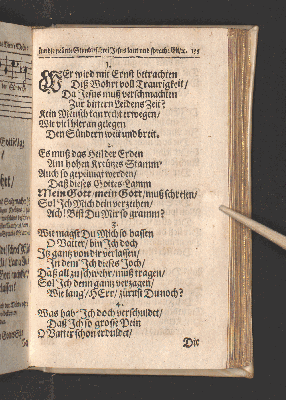 1.
WEr wird mit Ernst betrachten
Diß Wohrt voll Traurigkeit/
Da Jesus muß verschmachten
Zur bittern Leidens Zeit?
Kein Mensch kan recht erwegen/
Wie viel hieran gelegen
Den Sündern weit und breit.
2.
Es muß das Heil der Erden
Am hohen Kreützes Stamm'
Auch so gepeiniget werden/
Daß dieses Gottes Lamm
Mein Gott/ mein Gott/ muß schreien/
Sol' Ich Mich dein verzeihen/
Ach! Bist Du Mir so gramm?
3.
Wie magst Du Mich so hassen
O Vatter/ bin Ich doch
Itz ganz von dir verlassen/
In dem' Ich dieses Joch/
Daß all zu schwehr/ muß tragen/
Sol' Ich denn ganz verzagen/
Wie lang'/ HErr/ zürnst Du noch?
4.
Was hab' Ich doch verschuldet/
Daß Ich so grosse Pein
O Vatter schon erduldet/
Die